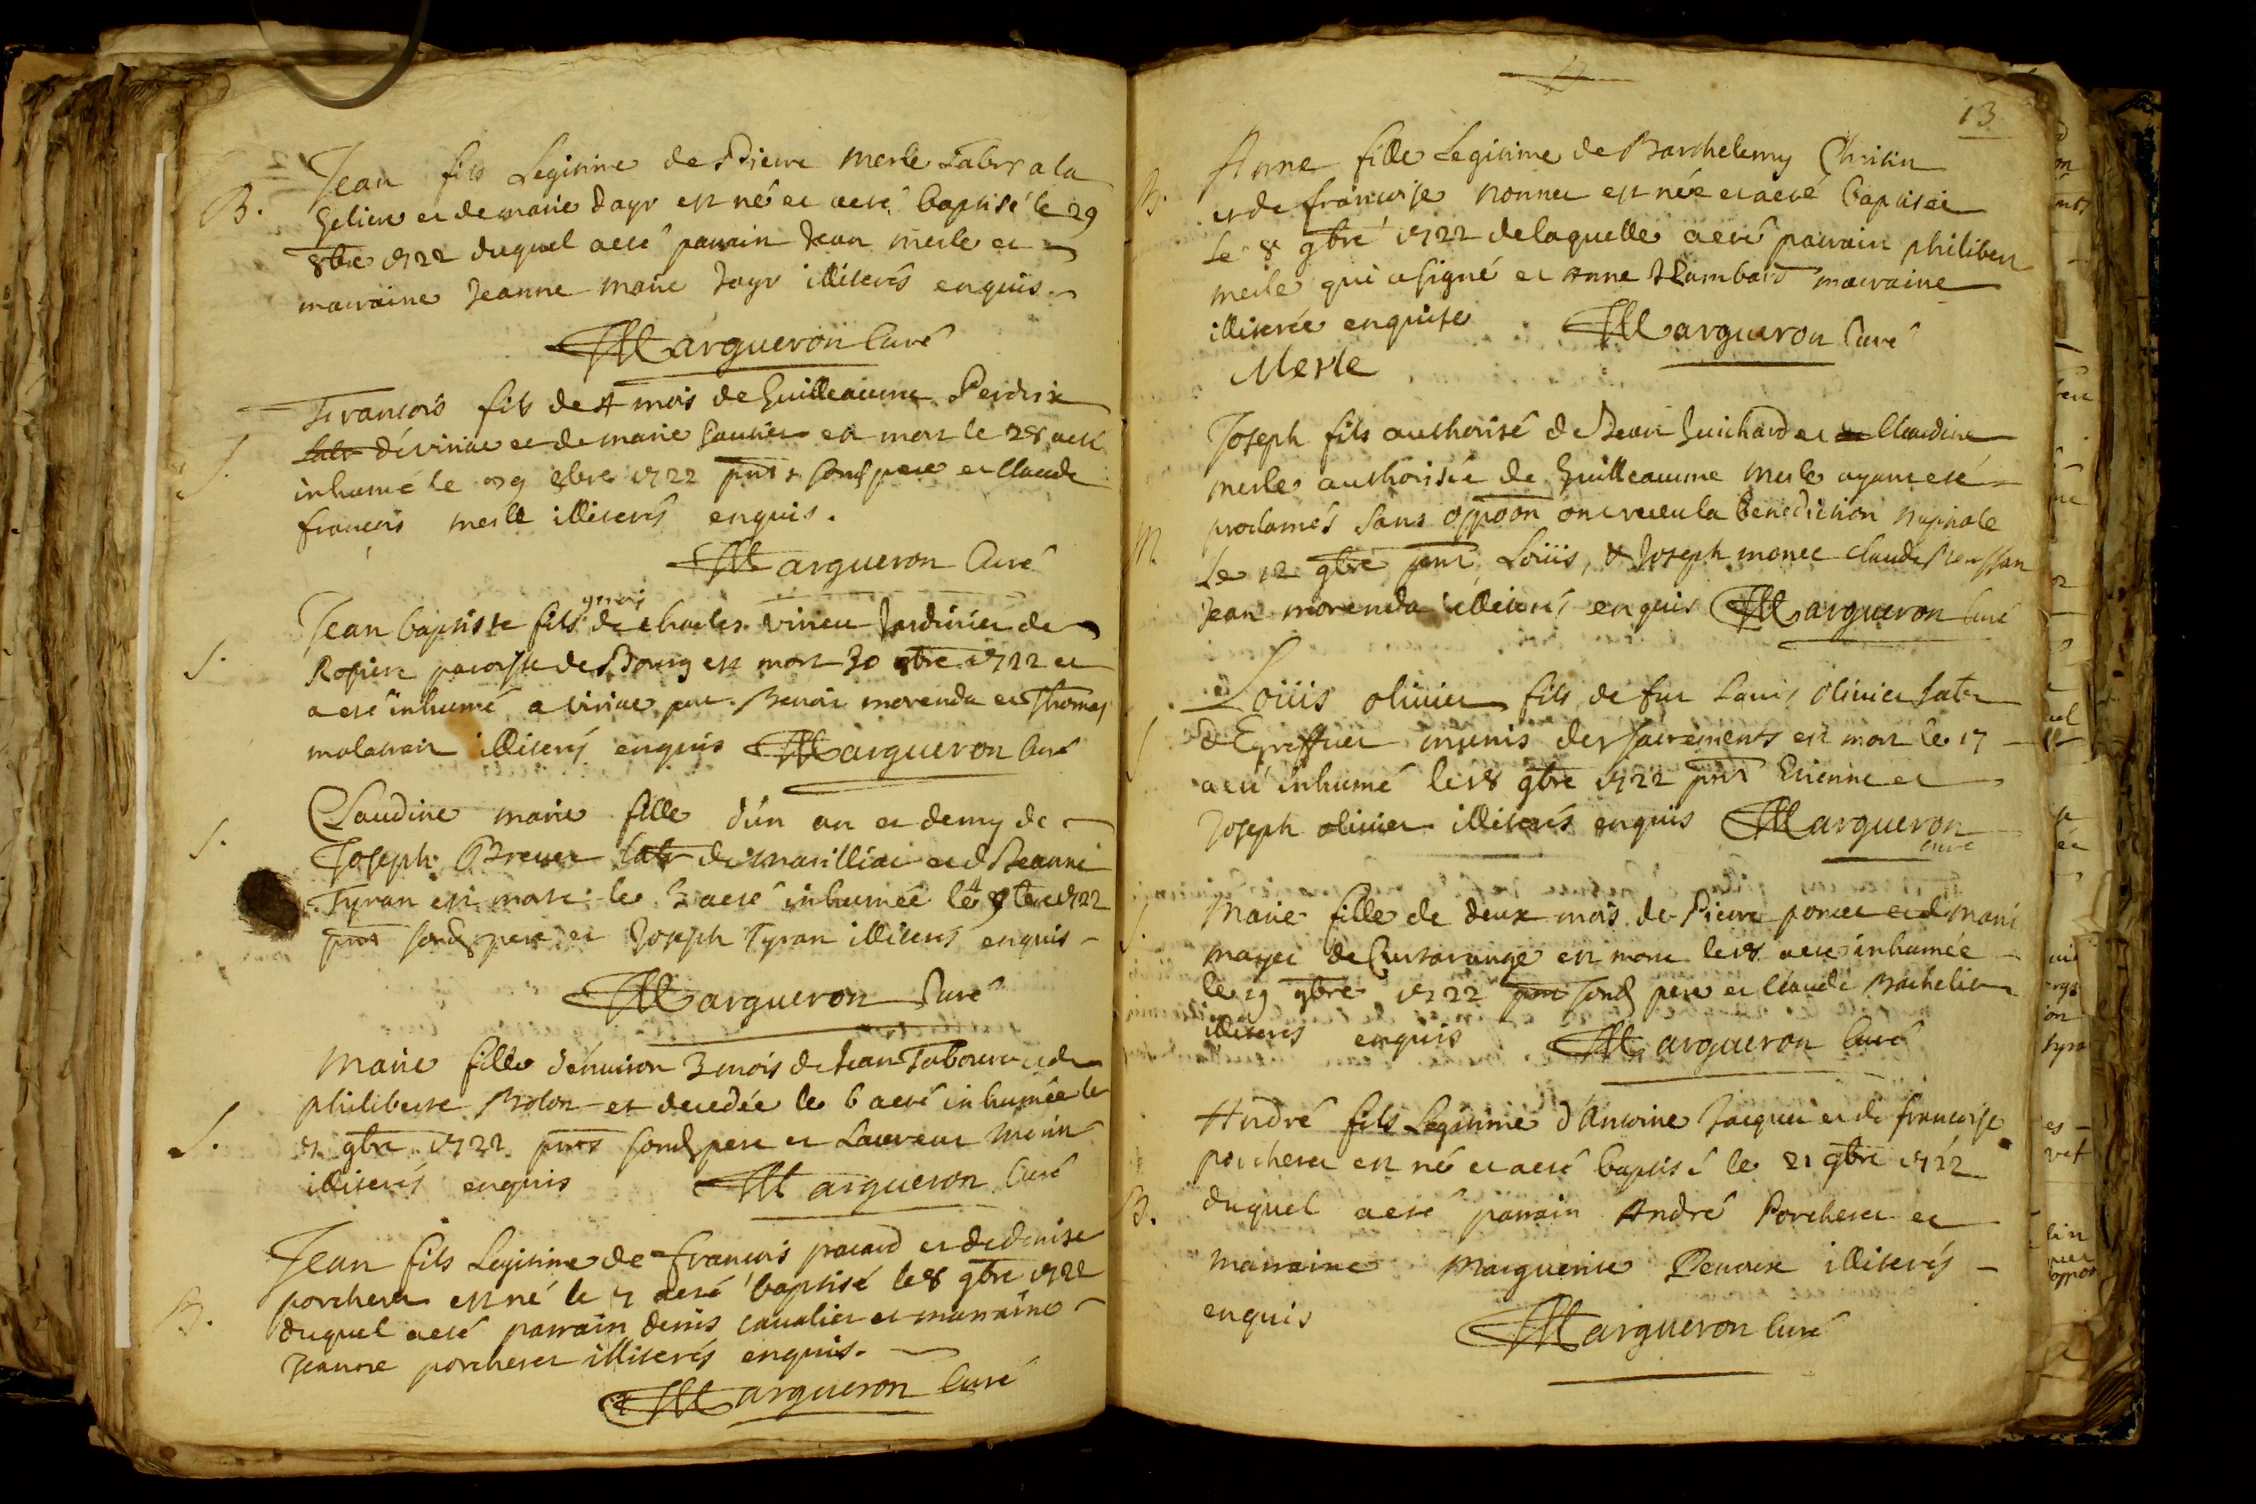 Jean fils Legitime de Pierre Merle Labr a la
B. Geliere et de marie Dayr est né et aeté baptisé le 29
8bre 1722 duquel aeté parrain Jean merle et
marraine Jeanne Marie Jayr illiterés enquis
Margueron Curé
Francois fils de 4 mois de Guilleaume Perdrix
S. labr déviriac et de marie Gautier est mort le 28 aeté
inhumé le 29 8bre 1722 pnts sond pere et Claude
francois merle illiterés enquis.
Margueron Curé
9 mois
Jean baptiste fils de charles virieu Jardinier de
S. Rosiere paroisse de Bourg est mort 30 8bre 1722 et
a eté inhumé a viriac pnt. Benoit morenda et Thomas
illiterés enquis Margueron Curé
Claudine marie fille d'ún an et demy de
S. Joseph Brevet labr de marilliac et d Jeanne
Tyran est morte le 3 aeté inhumée le 4 9bre 1722
pnts sond pere et Joseph Tyran illiterés enquis
Margueron Curé
Marie fille d'énuiron 3 mois de Jean Tabouret et de
philiberte Bolon est decedée le 6 aeté inhumée le
S. 7 9bre 1722 pnts sond pere et Laurent Morin
illiterés enquis Margueron Curé
Jean fils Legitime de Francois pacard et de denise
B. porcheret est né le 7 aeté baptisé le 8 9bre 1722
duquel aeté parrain denis cavalier et marraine
Jeanne porcheret illiterés enquis.
Margueron Curé
13
Anne fille Legitime de Barthelemy Chritin
B. et de francoise nonnet est née et aeté baptisée
Le 8 9bre 1722 de laquelle aeté parrain philibert
merle qui a signé et Anne Hlumbard marraine
illiterée enquise Margueron Curé
Merle
Joseph fils authorisé de Jean Guichard et Claudine
merle authorisée de Guilleaume Merle ayant eté
M. proclamés Sans oppoon ont receu la benediction nuptiale
Le 12 9bre pnt Loüis, & Joseph monet Claude
Jean morenda illiterés enquis Margueron Curé
Loüis olivier fils de fut Louis Olivier labr
S d'Egreffuet munis des sacrements est mort le 17
aeté inhumé le 18 9bre 1722 pnts Etienne et
Joseph olivier illiterés enquis Margueron
curé
S. Marie fille de deux mois de Pierre poncet et d Marie
mayet de Curtarange est morte le 18 aeté inhumée
le 19 9bre 1722 pnt sond pere et Claude Bachelier
illiterés enquis Margueron Curé
André fils Legitime d'Antoine Jacquet et de francoise
porcheret est né et aeté baptisé le 21 9bre 1722
B. duquel aeté parrain André Porcheret et
marraine Marguerite Penoux illiterés
enquis
Margueron Curé